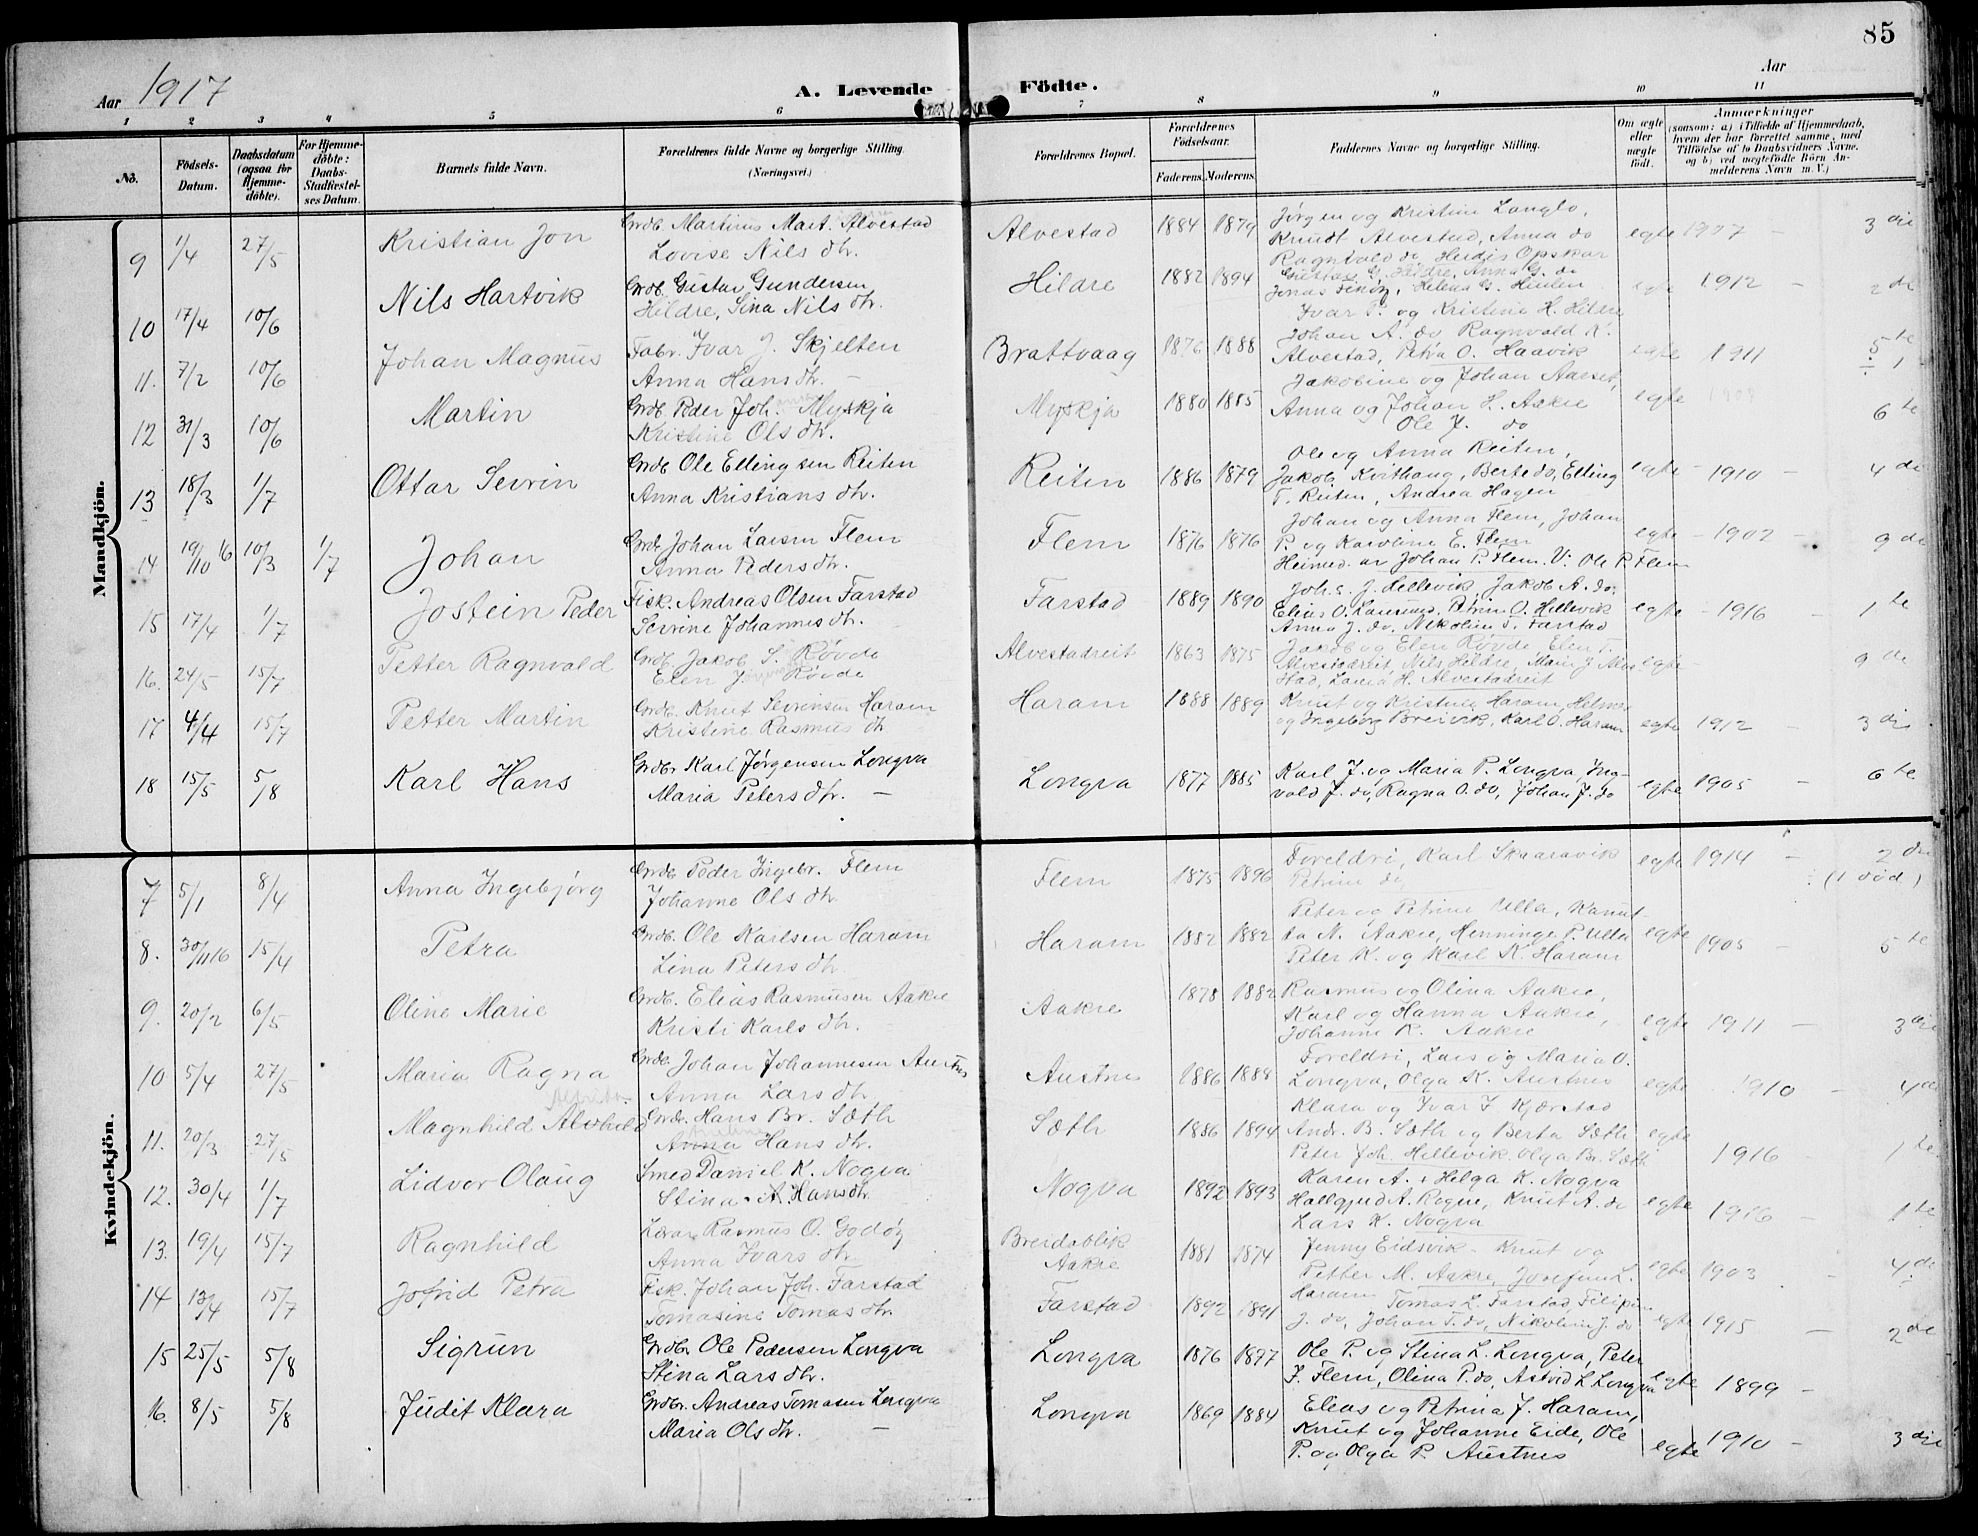 85
Aar 1917
A. Levende Födte.
Aar
1 2 3 4 5 6 7 8 9 10 11
No.
Födsels-Datum.
Daabsdatum (ogsaa for Hjemme-döbte).
For Hjemme-döbte: Daabs-Stadfæstel-ses Datum.
Barnets fulde Navn.
Forældrenes fulde Navne og borgerlige Stilling. (Næringsvei.)
Forældrenes Bopæl.
Forældrenes Födselsaar.
Faderens. Moderens.
Faddernes Navne og borgerlige Stilling.
Om ægte eller uægte født.
Anmærkninger
(saasom: a) i Tilfælde af Hjemmedaab, hvem der har forrettet samme, med Tilföielse af to Daabsvidners Navne, og b) ved uægtefödte Börn An-melderens Navn m. V.)
Mandkjön.
9 1/4 27/5 Kristian Jon Grdb. Martinus Mart. Alvestad Lovise Nils dtr. Alvestad 1884 1879 Jørgen og Kristine Longlo, Knudt Alvestad, Anna do Ragnvald do Herdis Opskar egte 1907 - 3die
10 17/4 10/6 Nils Hartvik Grdb. Gustav Gundersen Hildre, Sina Nils dtr. Hildre 1882 1894 Gustav G. Hildre, Anna G. do Jonas Finøy, Helena G. egte 1912 - 2de
11. 7/2 10/6 Johan Magnus Fabr. Ivar J. Skjelten Anna Hans dtr. - Brattvaag 1876 1888 Ivar P. og Kristine H. Hildre Johan A. do Ragnvald K. Alvestad, Petra O. Haavik egte 1911 5te ÷ 1
12 31/3 10/6 Martin Grdb. Peder Joh. Myskja Kristine Ols dtr. Myskja 1880 1885 Jakobine og Johan Aarset, Anna og Johan H. Aakre Ole J. do egte 1908 6te
13 18/3 1/7 Ottar Sevrin Grdb. Ole Ellingsen Reiten Anna Kristians dtr. Reiten 1886 1879 Ole og Anna Reiten, Jakob Kvithaug, Berte do, Elling T. Reiten, Andrea Hagen egte - 1910 - 4de
14 19/10 16 10/3 1/7 Johan Grdb. Johan Larsen Flem Anna Peders dtr. Flem 1876 1876 Johan og Anna Flem, Johan P. og Karoline E. Flem Heimed. av Johan P. Flem. V: Ole P. Flem egte - 1902 - 9de
15 17/4 1/7 Jostein Peder Fisk. Andreas Olsen Farstad Sevrine Johannes dtr. Farstad 1889 1890 Johs. J. Hellevik, Jakob A. do, Elias O. Petrine O. Hellevik Anna J. do, Nikoline T. Farstad egte - 1916 - 1te
16. 24/5 15/7 Petter Ragnvald Grdb. Jakob S. Røvde Elen J. Røvde Alvestadreit 1863 1875 Jakob og Elen Røvde, Elen T. Alvestadreit, Nils Hildre, J. Alve-stad, H. Alvestadreit egte - 9de
17 4/4 15/7 Petter Martin Grdb. Knut Sevrinsen Haram Kristine Rasmus dtr Haram 1888 1889 Knut og Kristine Haram, Helmer og Ingeborg Breivik, Karl O. Haram egte 1912 - 3die
18 15/5 5/8 Karl Hans Grdbr Karl Jørgensen Longva Maria Peters dtr. - Longva 1877 1885 Karl J. og Maria P. Longva, Ing-vald J. do, Ragna O. do, Johan J. do egte 1905 - 6te
Kvindekjön.
7 5/1 8/4 Anna Ingebjørg Grdb. Peder Ingebr. Flem Johanne Ols dtr. Flem 1875 1896 Foreldri, Karl Skaaravik Petrine do egte 1914 - 2den (1 død)
8. 30/11 16 15/4 Petra Grdb. Ole Karlsen Haram Lina Peters dtr. Haram 1882 1882 Peter og Petrine Ulla, Kanut-ta N. Aakre, Henninge P. Ulla Peter K. og Karl K. Haram egte 1905 - 5te
9. 20/2 6/5 Oline Marie Grdb. Elias Rasmusen Aakre Kristi Karls dtr. Aakre 1878 1882 Rasmus og Olina Aakre, Karl og Hanna Aakre, Johanne K. Aakre egte 1911 - 3die
10 5/4 27/5 Maria Ragna Grdb. Johan Johannesen Austnes Anna Lars dtr Austnes 1886 1888 Foreldri, Lars og Maria O. Longva, Olga K. Austnes egte 1910 - 4de
11. 20/3 27/5 Magnhild Alvhild Grdr. Hans Br. Sæth Anna Hans dtr. Sæth 1886 1894 Klara og Ivar I. Kjerstad Andr. B. Sæth og Berta Sæth Peter Joh. Hellevik, Olga Br. Sæth egte 1916 - 1te
12. 30/4 1/7 Lidvor Olaug Smed Daniel K. Nogva Stina A. Hans dtr. Nogva 1892 1893 Karen A. + Helga K. Nogva Hallgjerd A. Rogne, Knut A. do Lars K. Nogva egte 1916 - 1te
13. 19/4 15/7 Ragnhild Lærar Rasmus O. Godøy Anna Ivars dtr. Breidablik Aakre 1881 1874 Jenny Eidsvik - Knut og Petter M. Aakre, Josefine L. Haram egte 1903 - 4de
14 13/4 15/7 Jofrid Petra Fisk. Johan Joh. Farstad Tomasine Tomas dtr. Farstad 1892 1891 Tomas L. Farstad, Filipin J. do, Johan T. do, Nikoline J. do egte 1915 - 2de
15 25/5 5/8 Sigrun Grdbr Ole Pedersen Longva Stina Lars dtr. Longva 1876 1877 Ole P. og Stina L. Longva, Peter J. Flem, Olina P. do, Astrid L Longva egte 1899 -
16. 8/5 5/8 Judit Klara Grdbr. Andreas Tomasen Longva Maria Ols dtr. - Longva 1869 1884 Elias og Petrina J. Haram, Knut og Johanne Eide, Ole P. og Olga P. Austnes egte 1910 - 3die